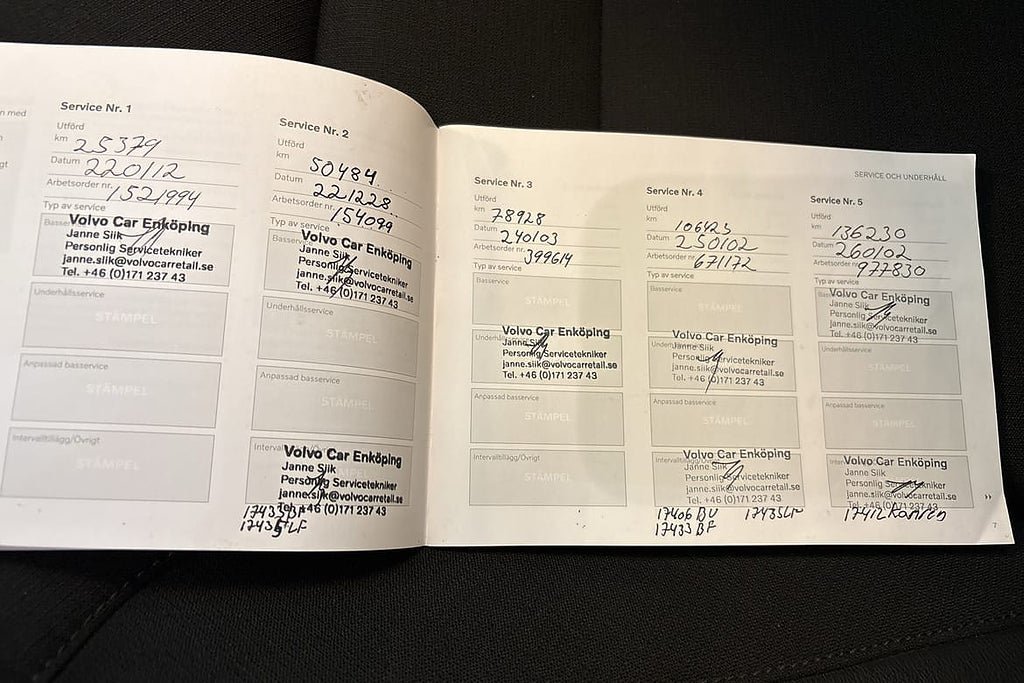 n med
gt
Service Nr. 1
Utförd
km 25379
Datum 220112
Arbetsorder nr. 1521994
Typ av service
Volvo Car Enköping
Janne Siik
Personlig Servicetekniker
janne.siik@volvocarretail.se
Tel. +46 (0)171 237 43
Underhållsservice
STÄMPEL
Anpassad basservice
STÄMPEL
Intervalltillägg/Övrigt
STÄMPEL
Service Nr. 2
Utförd
km 50484
Datum 221228
Arbetsorder nr. 154099
Typ av service
Volvo Car Enköping
Janne Siik
Personlig Servicetekniker
janne.siik@volvocarretail.se
Tel. +46 (0)171 237 43
Underhållsservice
STÄMPEL
Anpassad basservice
STÄMPEL
Volvo Car Enköping
Janne Siik
Personlig Servicetekniker
janne.siik@volvocarretail.se
Tel. +46 (0)171 237 43
17433 BF
17435 LF
SERVICE OCH UNDERHÅLL
Service Nr. 3
Utförd
km 78928
Datum 240103
Arbetsorder nr. 399614
Typ av service
Basservice
STÄMPEL
Volvo Car Enköping
Janne Siik
Personlig Servicetekniker
janne.siik@volvocarretail.se
Tel. +46 (0)171 237 43
Anpassad basservice
STÄMPEL
Intervalltillägg/Övrigt
STÄMPEL
Service Nr. 4
Utförd
km 106425
Datum 250102
Arbetsorder nr. 671172
Typ av service
Basservice
STÄMPEL
Volvo Car Enköping
Janne Siik
Personlig Servicetekniker
janne.siik@volvocarretail.se
Tel. +46 (0)171 237 43
Anpassad basservice
STÄMPEL
Volvo Car Enköping
Janne Siik
Personlig Servicetekniker
janne.siik@volvocarretail.se
Tel. +46 (0)171 237 43
17406 BV 17435 LF
17433 BF
Service Nr. 5
Utförd
km 136230
Datum 260102
Arbetsorder nr. 977830
Typ av service
Volvo Car Enköping
Janne Siik
Personlig Servicetekniker
janne.siik@volvocarretail.se
Tel. +46 (0)171 237 43
Underhållsservice
STÄMPEL
Anpassad basservice
STÄMPEL
Volvo Car Enköping
Janne Siik
Personlig Servicetekniker
janne.siik@volvocarretail.se
Tel. +46 (0)171 237 43
17412
››
7